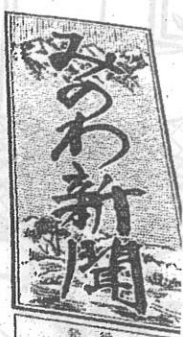 みのわ新聞